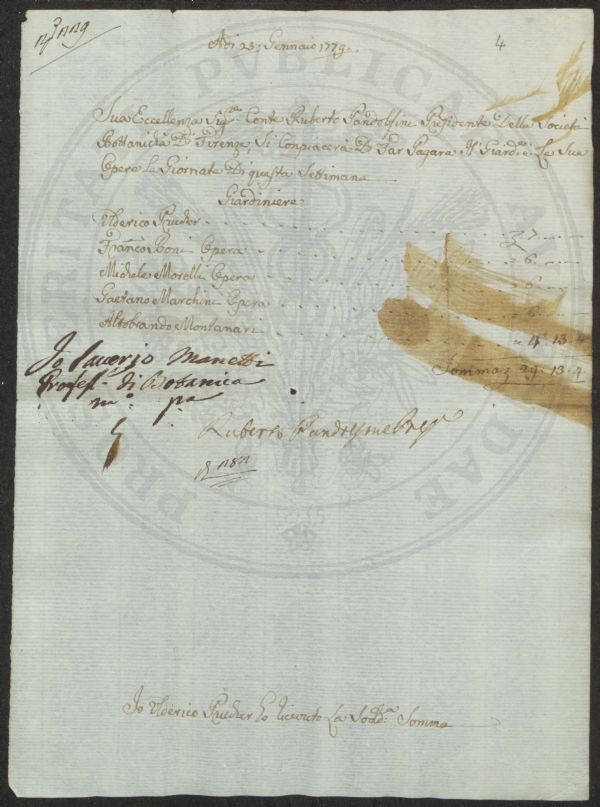 4
Adi 23: Gennaio 1779
Sua Eccellenza Sig.re Conte Ruberto Pandolfine Presidente Della Società
Bottanicha Di Firenze Si Conpiacerà Di Far Pagare Giardi.e Le Sua
Opere Le Giornate Di questa Settimana
Giardiniere
Ulderico 7
Franco: Boni Opera 6
Michele Morelli Opera 6
Gaetano Marchini Opera 6
Altobrando Montanari 4 13.4
Somma 29 13.4
Io Saverio Manetti
Profess.e di Botanica
m.o pa
Ruberto Pres
Io Ulderico ho riceuto La Sod.a Somma